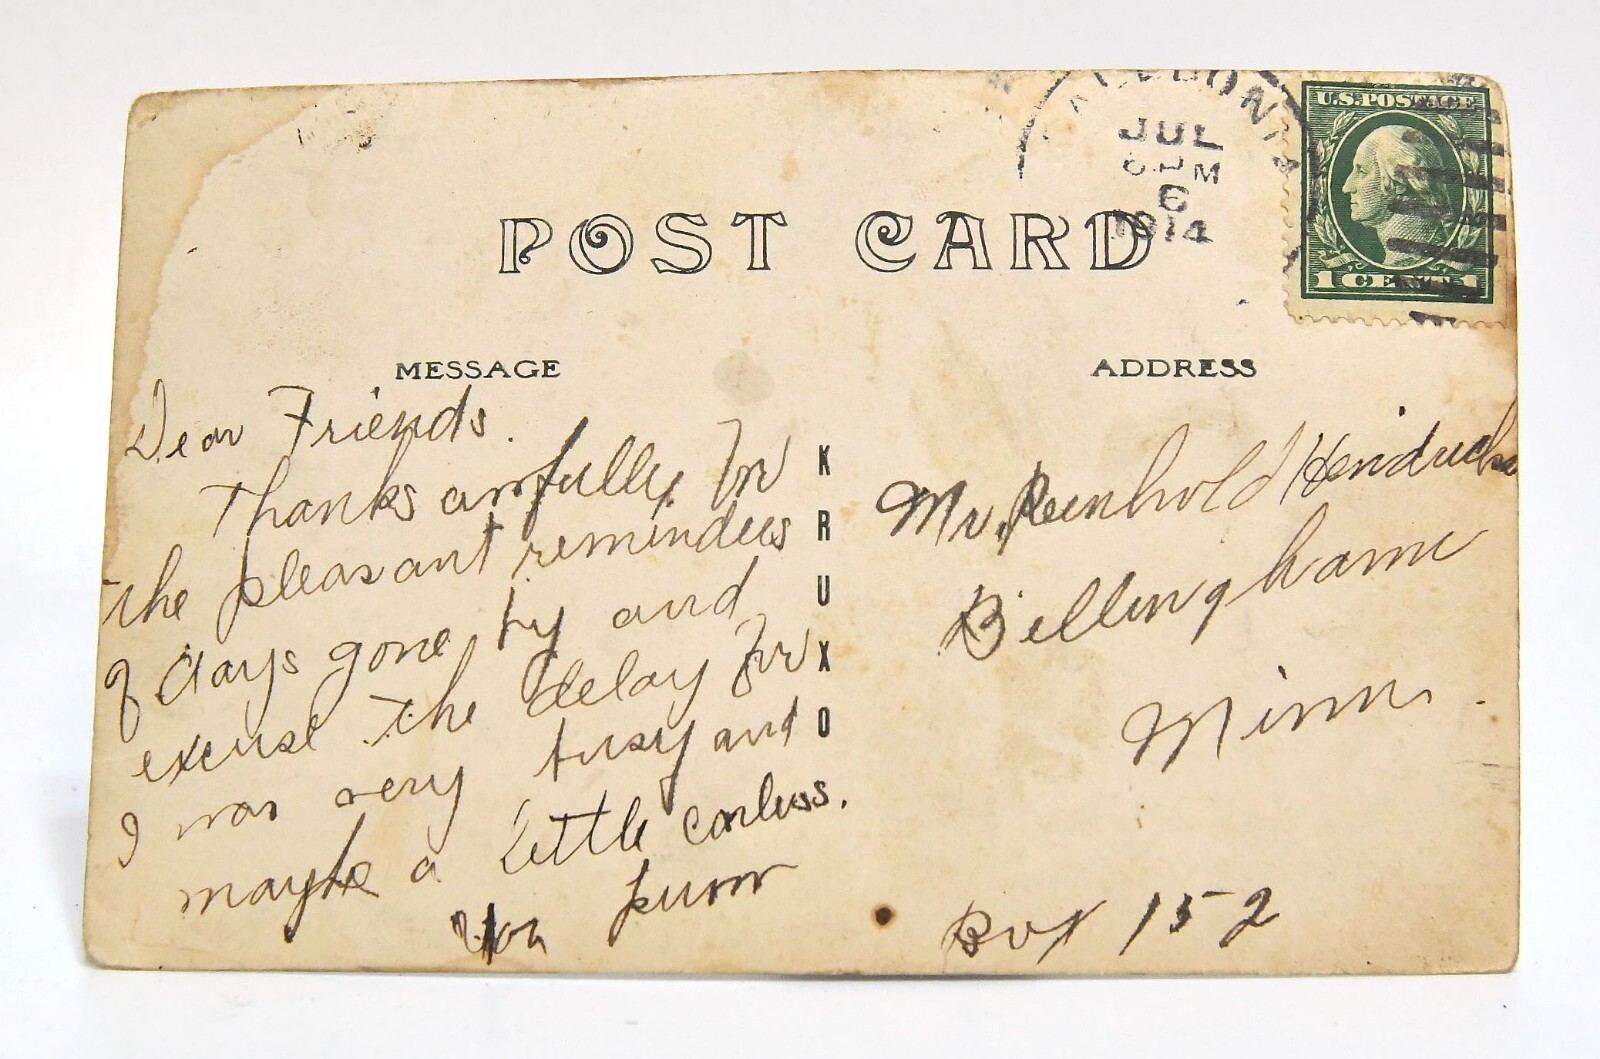 POST CARD
CALEDONIA
JUL
6
1914
U.S. POSTAGE
1 CENT 1
MESSAGE
Dear Friends.
Thanks awfully for
the pleasant reminders
of days gone by and
excuse the delay for
I was very busy and
maybe a little careless.
You know
KRUXO
ADDRESS
Mr. Reinhold Hendricks
Bellinghame
Minn.
Box 152